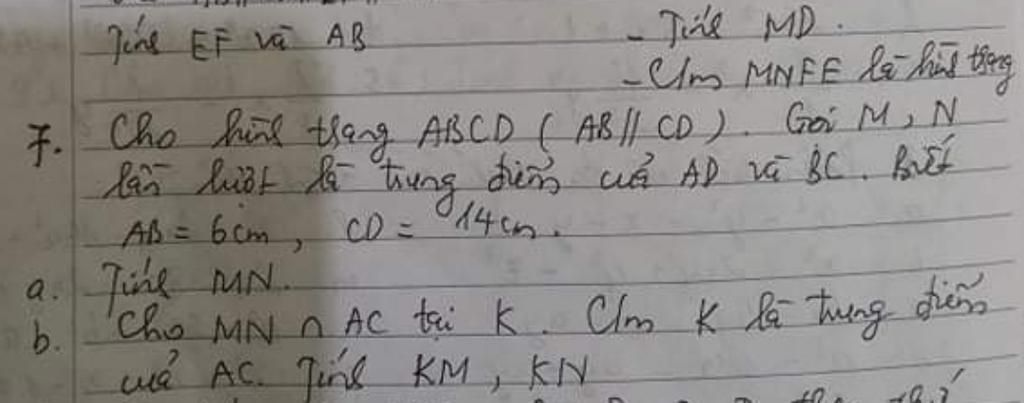 Tính EF và AB - Tính MD.
- C/m MNFE là hình thang
7. Cho hình thang ABCD ( AB // CD ). Gọi M, N
lần lượt là trung điểm của AD và BC. Biết
AB = 6cm, CD = 14cm.
a. Tính MN.
b. Cho MN ∩ AC tại K. C/m K là trung điểm
của AC. Tính KM, KN